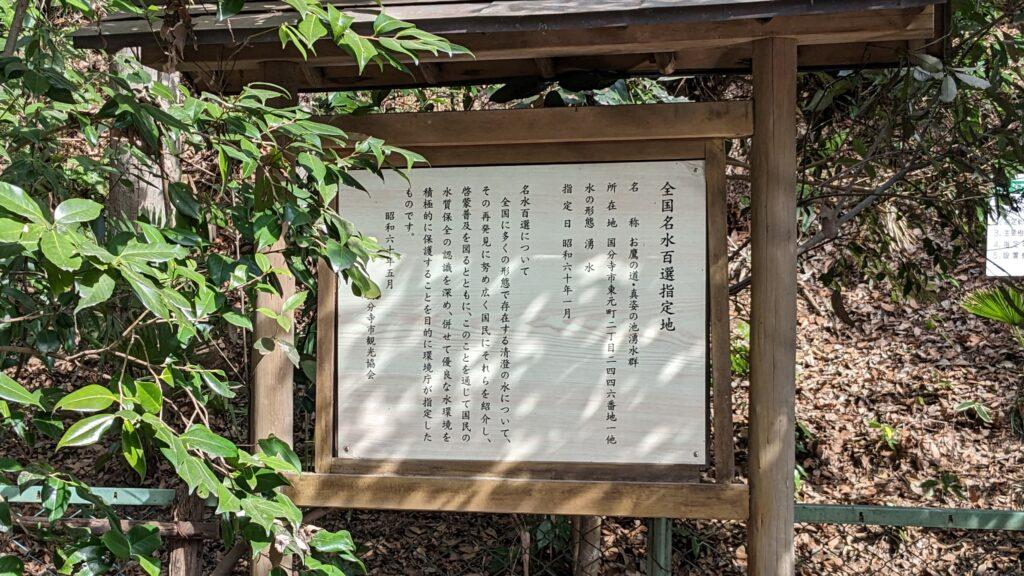 全国名水百選指定地
名　称 お鷹の道・真姿の池湧水群
所在地 国分寺市東元町二丁目二四四六番地一他
水の形態 湧　水
指定日 昭和六十年一月
名水百選について
全国に多くの形態で存在する清澄の水について、
その再発見に努め広く国民にそれらを紹介し、
啓蒙普及を図るとともに、このことを通じて国民の
水質保全の認識を深め、併せて優良な水環境を
積極的に保護することを目的に環境庁が指定した
ものです。
昭和六十 五月
分寺市観光協会